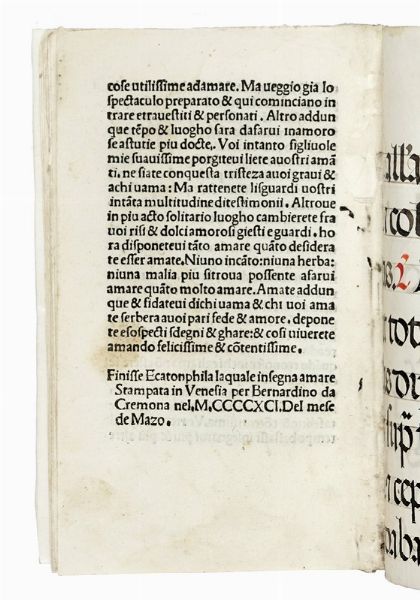 cose utilissime adamare. Ma ueggio gia lo
spectaculo preparato & qui cominciano in
trare etrauestiti & personati. Altro addun
que tẽpo & luogho sara dasarui inamoro
se astutie piu docte. Voi intanto sigliuole
mie suauissime porgiteui liete auostri amã
ti. ne siate conquesta tristeza auoi graui &
achi uama: Ma rattenete lisguardi uostri
intãta multitudine ditestimonii. Altroue
in piu acto solitario luogho cambierete fra
uoi risi & dolci amorosi giesti e guardi. ho
ra disponeteui tãto amare quãto desidera
te esser amate. Niuno incãto: niuna herba:
niuna malia piu sitroua possente afarui
amare quãto molto amare. Amate addun
que & fidateui dichi uama & chi uoi ama
te serbera auoi pari fede & amore. depone
te esospecti sdegni & ghare: & cosi uiuerete
amando felicissime & cõtentissime.
Finisse Ecatonphila laquale insegna amare
Stampata in Venesia per Bernardino da
Cremona nel. M. CCCCXCI. Del mese
de Mazo.
all'a
col
s. L
tot
cep